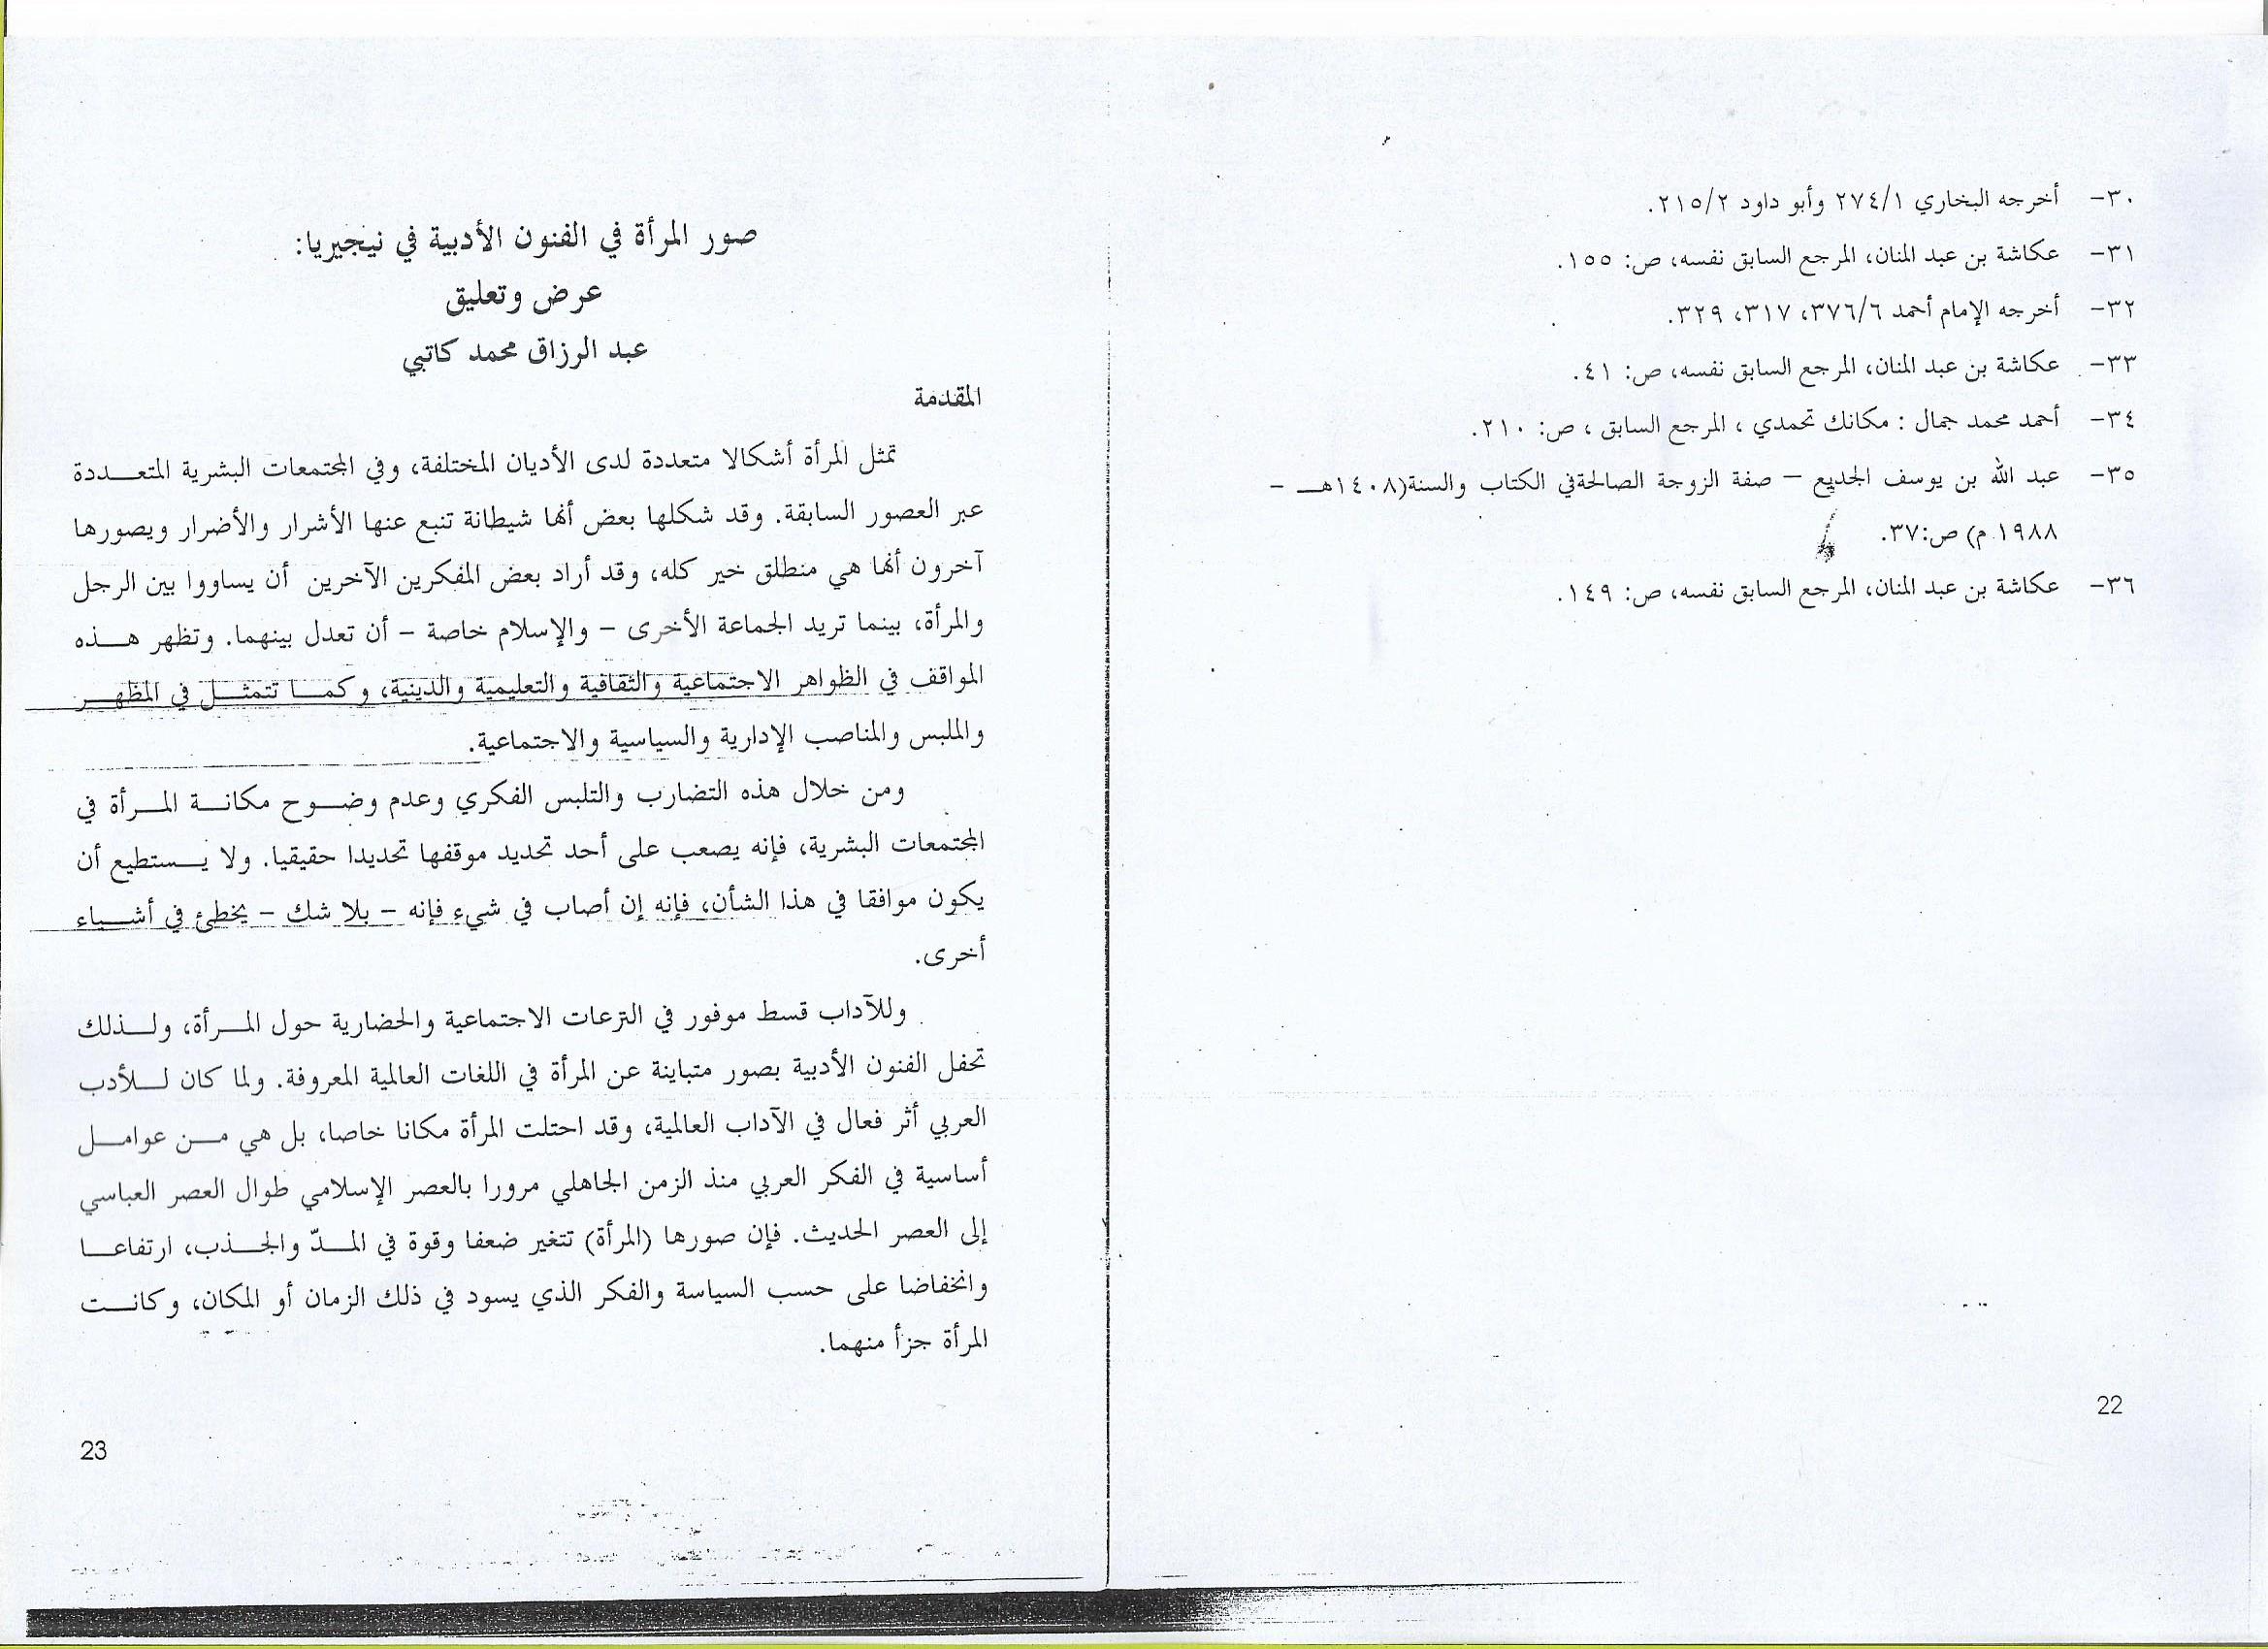 ٣٠- أخرجه البخاري ٢٧٤/١ وأبو داود ٢١٥/٢.
٣١- عكاشة بن عبد المنان، المرجع السابق نفسه، ص: ١٥٥.
٣٢- أخرجه الإمام أحمد ٣٧٦/٦، ٣١٧، ٣٢٩.
٣٣- عكاشة بن عبد المنان، المرجع السابق نفسه، ص: ٤١.
٣٤- أحمد محمد جمال : مكانك تحمدي ، المرجع السابق ، ص: ٢١٠.
٣٥- عبد الله بن يوسف الجديع – صفة الزوجة الصالحةفي الكتاب والسنة(١٤٠٨هـ –
١٩٨٨ م) ص:٣٧.
٣٦- عكاشة بن عبد المنان، المرجع السابق نفسه، ص: ١٤٩.
22
صور المرأة في الفنون الأدبية في نيجيريا:
عرض وتعليق
عبد الرزاق محمد كاتبي
المقدمة
تمثل المرأة أشكالا متعددة لدى الأديان المختلفة، وفي المجتمعات البشرية المتعددة
عبر العصور السابقة. وقد شكلها بعض أنها شيطانة تنبع عنها الأشرار والأضرار ويصورها
آخرون أنها هي منطلق خير كله، وقد أراد بعض المفكرين الآخرين أن يساووا بين الرجل
والمرأة، بينما تريد الجماعة الأخرى – والإسلام خاصة – أن تعدل بينهما. وتظهر هذه
المواقف في الظواهر الاجتماعية والثقافية والتعليمية والدينية، وكما تتمثل في المظهر
والملبس والمناصب الإدارية والسياسية والاجتماعية.
ومن خلال هذه التضارب والتلبس الفكري وعدم وضوح مكانة المرأة في
المجتمعات البشرية، فإنه يصعب على أحد تحديد موقفها تحديدا حقيقيا. ولا يستطيع أن
يكون موافقا في هذا الشأن، فإنه إن أصاب في شيء فإنه – بلا شك – يخطئ في أشياء
أخرى.
وللآداب قسط موفور في النزعات الاجتماعية والحضارية حول المرأة، ولذلك
تحفل الفنون الأدبية بصور متباينة عن المرأة في اللغات العالمية المعروفة. ولما كان للأدب
العربي أثر فعال في الآداب العالمية، وقد احتلت المرأة مكانا خاصا، بل هي من عوامل
أساسية في الفكر العربي منذ الزمن الجاهلي مرورا بالعصر الإسلامي طوال العصر العباسي
إلى العصر الحديث. فإن صورها (المرأة) تتغير ضعفا وقوة في المدّ والجذب، ارتفاعا
وانخفاضا على حسب السياسة والفكر الذي يسود في ذلك الزمان أو المكان، وكانت
المرأة جزأ منهما.
23